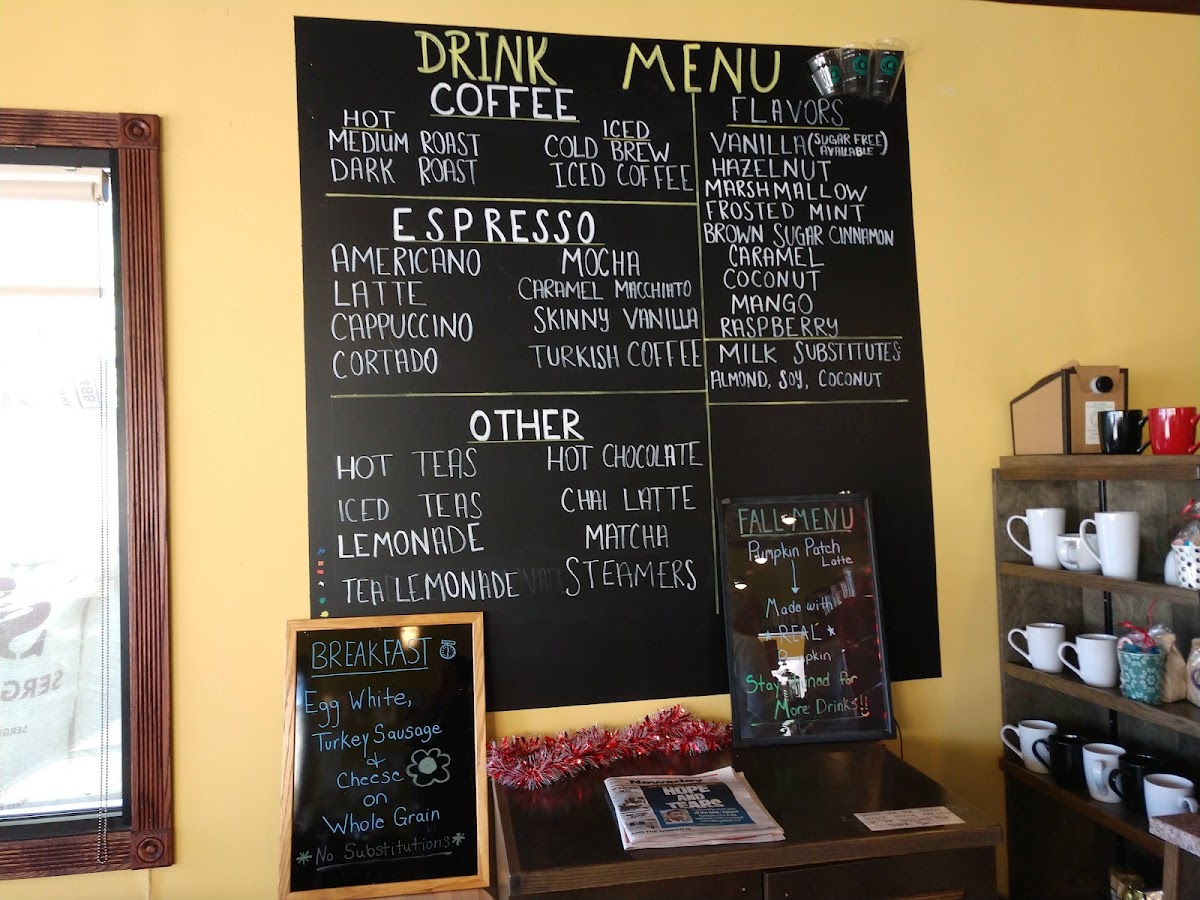 DRINK MENU
COFFEE
HOT
MEDIUM ROAST
DARK ROAST
ICED
COLD BREW
ICED COFFEE
ESPRESSO
AMERICANO
LATTE
CAPPUCCINO
CORTADO
MOCHA
CARAMEL MACCHIATO
SKINNY VANILLA
TURKISH COFFEE
OTHER
HOT TEAS
ICED TEAS
LEMONADE
TEA LEMONADE
HOT CHOCOLATE
CHAI LATTE
MATCHA
STEAMERS
FLAVORS
VANILLA (SUGAR FREE AVAILABLE)
HAZELNUT
MARSHMALLOW
FROSTED MINT
BROWN SUGAR CINNAMON
CARAMEL
COCONUT
MANGO
RASPBERRY
MILK SUBSTITUTES
ALMOND, SOY, COCONUT
FALL MENU
Pumpkin Patch
Latte
Made with
*REAL*
Pumpkin
Stay tuned for
More Drinks!!
BREAKFAST
Egg White,
Turkey Sausage
&
Cheese
on
Whole Grain
*No Substitutions*
Newsday
HOPE
AND
TEARS
SERG